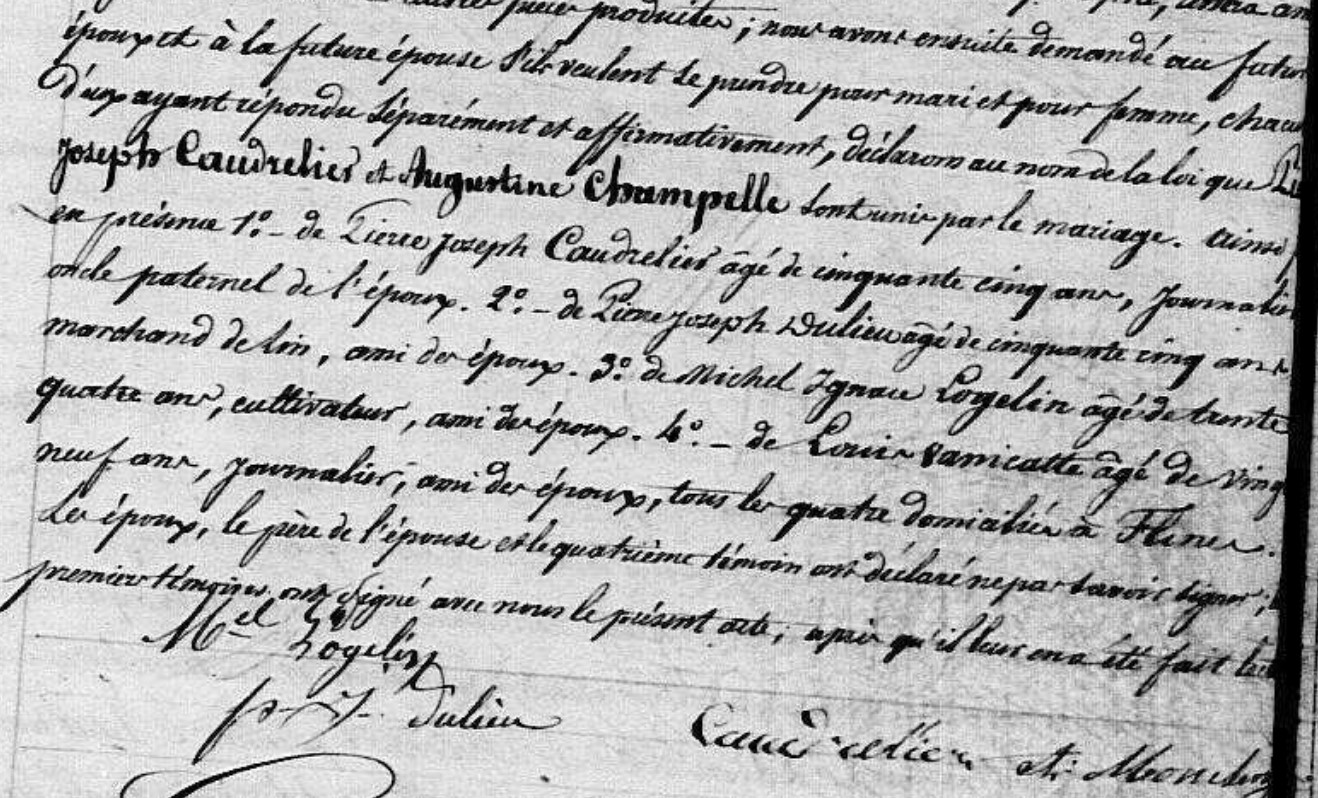 pièces produites ; nous avons ensuite demandé au futur
époux et à la future épouse s'ils veulent se prendre pour mari et pour femme, chacun
d'eux ayant répondu séparément et affirmativement, déclarons au nom de la loi que
Joseph Caudrelier et Augustine Champelle sont unis par le mariage. ainsi
en présence 1º. - de Pierre Joseph Caudrelier âgé de cinquante cinq ans, journalier
oncle paternel de l'époux. 2º. - de Pierre Joseph Dulieu âgé de cinquante cinq ans
marchand de lin, ami des époux. 3º. de Michel Ignace Logelin âgé de trente
quatre ans, cultivateur, ami des époux. 4º. - de Louis Vanicatte âgé de ving
neuf ans, journalier, ami des époux, tous les quatre domiciliés à Flines.
Les époux, le père de l'épouse et le quatrième témoin ont déclaré ne pas savoir signer ;
premiers témoins ont signé avec nous le présent acte ; après qu'il leur en a été fait
Mel Logelin
p. J. dulieu
Caudrelier